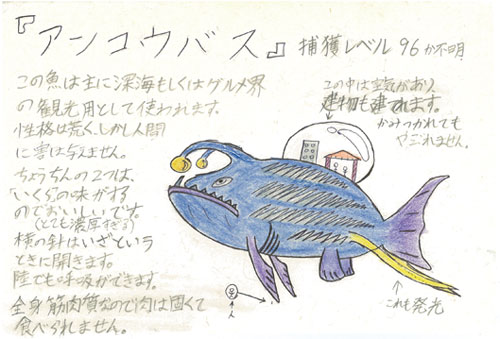 『アンコウバス』 捕獲レベル 96か不明
この魚は主に深海もしくはグルメ界
の観光用として使われます。
性格は荒く、しかし人間
に害は与えません。
ちょうちんの2つは、
「いくら」の味がする
のでおいしいです。
(とても濃厚すぎる)
横の針はいざという
ときに開きます。
陸でも呼吸ができます。
全身筋肉質なので肉は固くて
食べられません。
この中は空気があり
建物も建てれます。
かみつかれても
やぶれません。
人
これも発光